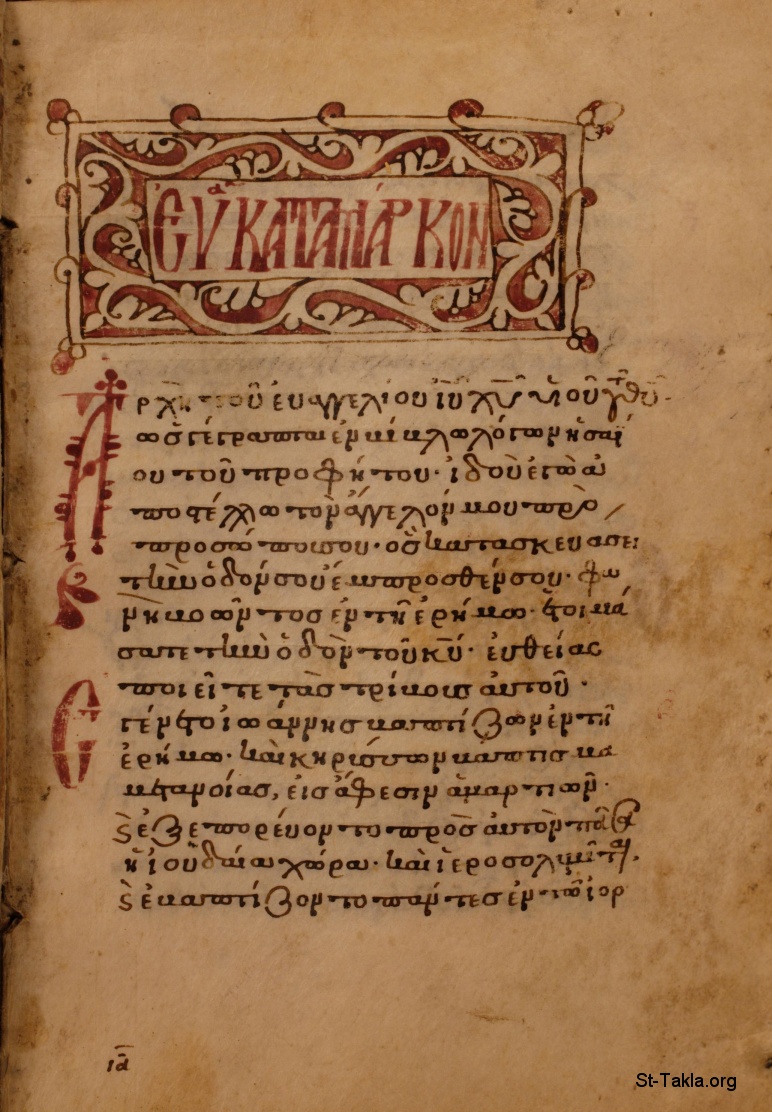 ΕΥΑ ΚΑΤΑ ΜΑΡΚΟΝ
Ἀρχὴ τοῦ εὐαγγελίου ἰυ χυ υἱοῦ τοῦ θυ
ὡς γέγραπται ἐν βίβλω λόγων ἡσαΐ
ου τοῦ προφήτου· ἰδοῦ ἐγὼ ἀ
ποστέλλω τὸν ἄγγελόν μου πρὸ
προσώπου σου· ὃς κατασκευάσει
τὴν ὁδόν σου ἔμπροσθέν σου· φω
νὴ βοῶντος ἐν τῆ ἐρήμω· ἑτοιμά
σατε τὴν ὁδὸν τοῦ κυ· εὐθείας
ποιεῖτε τὰς τρίβους αὐτοῦ·
Ἐγένετο ἰωάννης βαπτίζων ἐν τῆ
ἐρήμω· καὶ κηρύσσων βάπτισμα
μετανοίας, εἰς ἄφεσιν ἁμαρτιῶν·
ϗ ἐξεπορεύοντο πρὸς αὐτὸν πᾶσα
ἡ ἰουδαία χώρα· καὶ ἱεροσολυμῖται,
ϗ ἐβαπτίζοντο πάντες ἐν τῶ ἰορ
ια
St-Takla.org